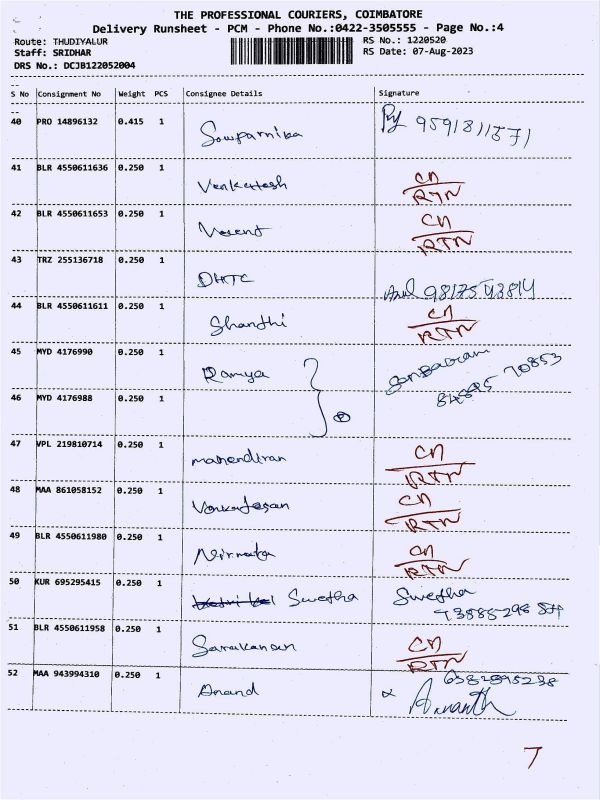 THE PROFESSIONAL COURIERS, COIMBATORE
Delivery Runsheet - PCM - Phone No.:0422-3505555 - Page No.:4
Route: THUDIYALUR RS No.: 1220520
Staff: SRIDHAR RS Date: 07-Aug-2023
DRS No.: DCJB122052004
S No Consignment No Weight PCS Consignee Details Signature
40 PRO 14896132 0.415 1 Sowparnika 9591811571
41 BLR 4550611636 0.250 1 Venkatesh CN
RTN
42 BLR 4550611653 0.250 1 CN
RTN
43 TRZ 255136718 0.250 1 DHTC 9817543814
44 BLR 4550611611 0.250 1 Shanthi CN
RTN
45 MYD 4176990 0.250 1 Ramya
46 MYD 4176988 0.250 1
47 VPL 219810714 0.250 1 mahendiran CN
RTN
48 MAA 861058152 0.250 1 Venkatesan CN
RTN
49 BLR 4550611980 0.250 1 Nirmala CN
RTN
50 KUR 695295415 0.250 1 Swetha Swetha
51 BLR 4550611958 0.250 1 CN
RTN
52 MAA 943994310 0.250 1 Anand 6382895238
Ananth
7